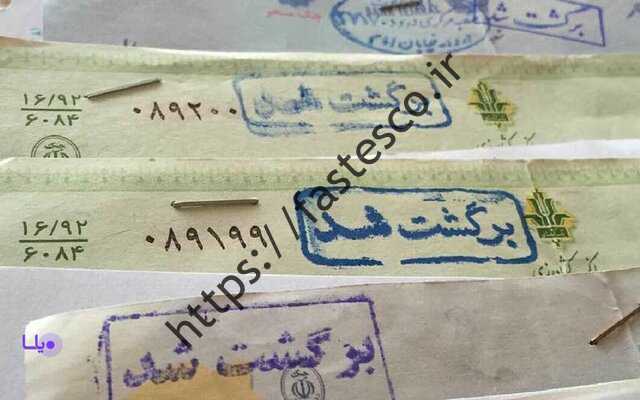 برگشت شد
۱۶/۹۲
۶۰۸۴
۰۸۹۲۰۰
برگشت شد
۱۶/۹۲
۶۰۸۴
۰۸۹۱۹۹
برگشت شد
برگشت شد
یلدا
https://fastesco.ir